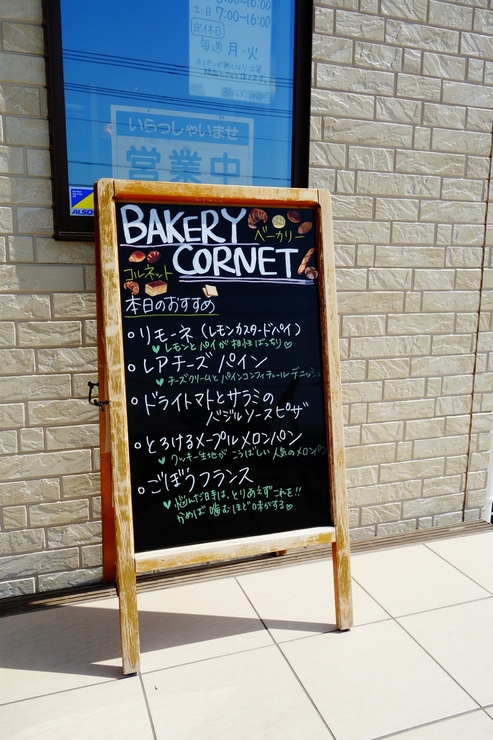 土・日 7:00~16:00
定休日
毎週 月・火
いらっしゃいませ
営業中
ALSOK
BAKERY
ベーカリー
コルネット
CORNET
本日のおすすめ
○リモーネ（レモンカスタードパイ）
♥レモンとパイが相性ばっちり♡
○レアチーズパイン
♥チーズクリームとパインコンフィチュールデニッシュ
○ドライトマトとサラミの
バジルソースピザ
○とろけるメープルメロンパン
♥クッキー生地がこうばしい人気のメロンパン
○ごぼうフランス
♥悩んだ時は、とりあえずこれを!!
かめば噛むほど味がする♡